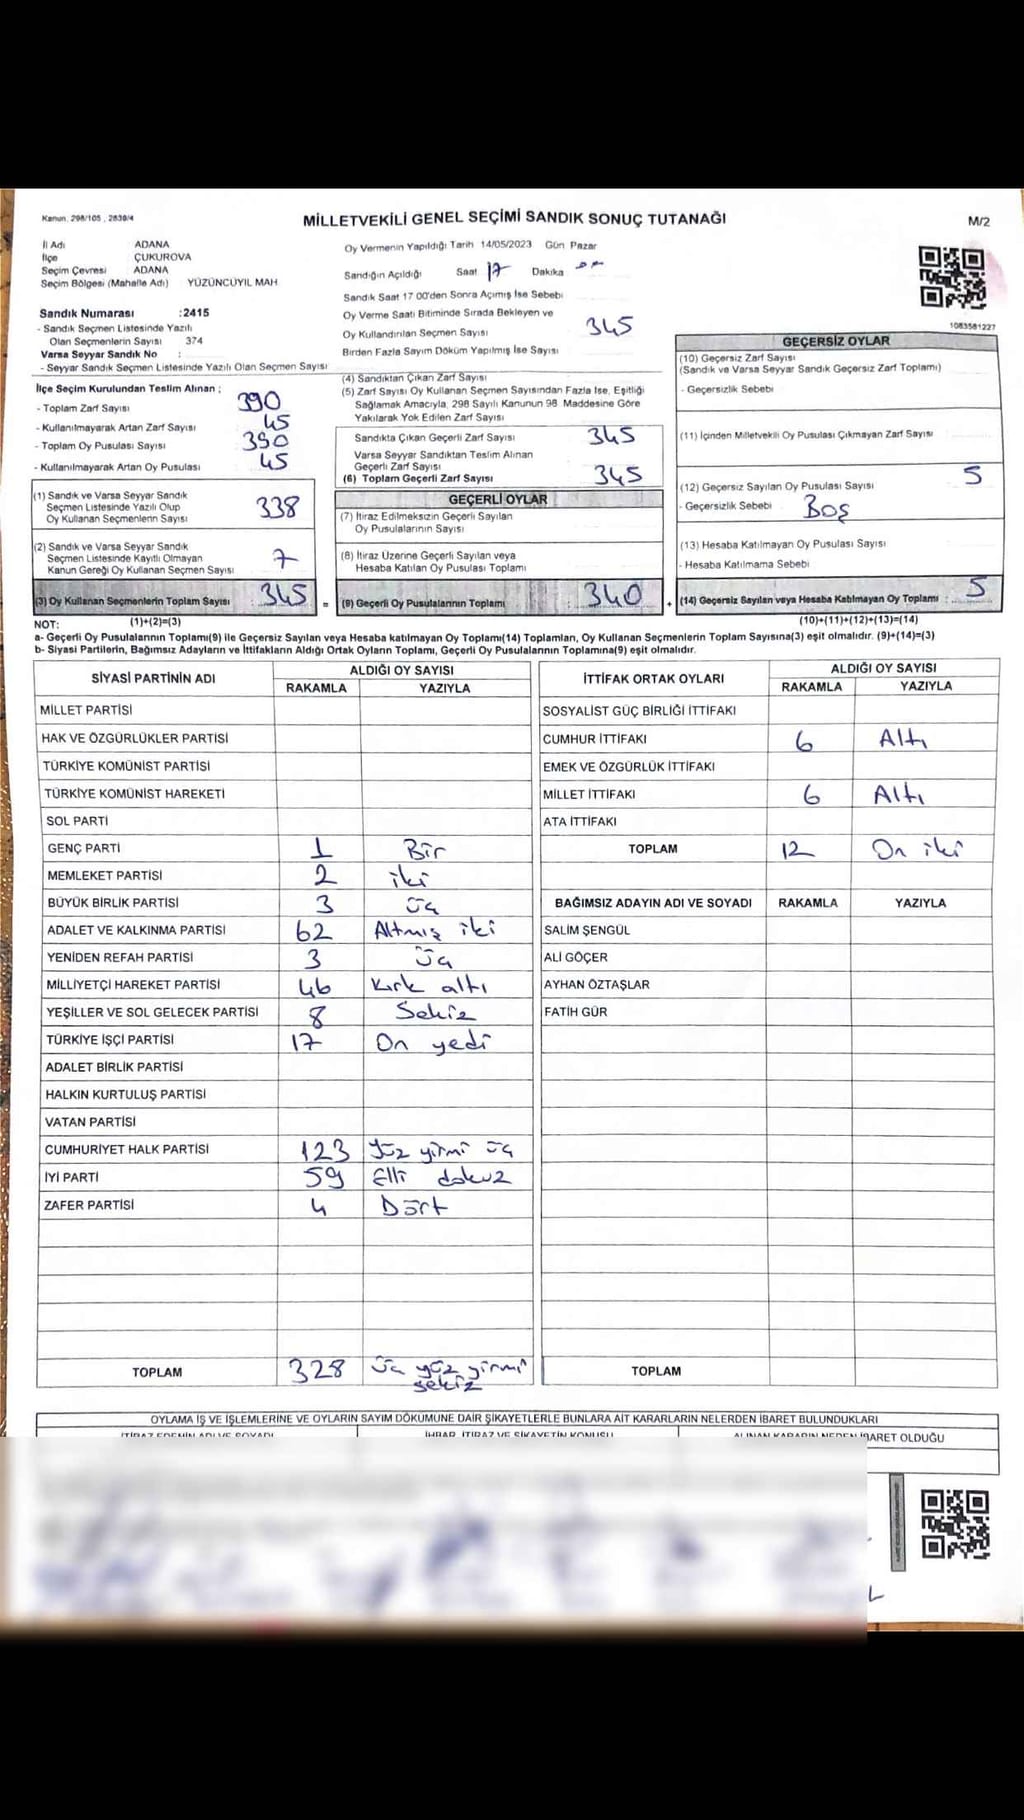 Kanun, 298/105 , 2839/4
MİLLETVEKİLİ GENEL SEÇİMİ SANDIK SONUÇ TUTANAĞI
M/2
İl Adı ADANA
İlçe ÇUKUROVA
Seçim Çevresi ADANA
Seçim Bölgesi (Mahalle Adı) YÜZÜNCÜYIL MAH
Sandık Numarası :2415
- Sandık Seçmen Listesinde Yazılı
Olan Seçmenlerin Sayısı 374
Varsa Seyyar Sandık No :
- Seyyar Sandık Seçmen Listesinde Yazılı Olan Seçmen Sayısı
İlçe Seçim Kurulundan Teslim Alınan ;
- Toplam Zarf Sayısı 390
- Kullanılmayarak Artan Zarf Sayısı 45
- Toplam Oy Pusulası Sayısı 390
- Kullanılmayarak Artan Oy Pusulası 45
(1) Sandık ve Varsa Seyyar Sandık
Seçmen Listesinde Yazılı Olup
Oy Kullanan Seçmenlerin Sayısı 338
(2) Sandık ve Varsa Seyyar Sandık
Seçmen Listesinde Kayıtlı Olmayan
Kanun Gereği Oy Kullanan Seçmen Sayısı 7
(3) Oy Kullanan Seçmenlerin Toplam Sayısı 345 =
(1)+(2)=(3)
Oy Vermenin Yapıldığı Tarih 14/05/2023 Gün Pazar
Sandığın Açıldığı Saat 17 Dakika
Sandık Saat 17 00'den Sonra Açımış İse Sebebi
Oy Verme Saati Bitiminde Sırada Bekleyen ve
Oy Kullandırılan Seçmen Sayısı 345
Birden Fazla Sayım Döküm Yapılmış İse Sayısı
(4) Sandıktan Çıkan Zarf Sayısı
(5) Zarf Sayısı Oy Kullanan Seçmen Sayısından Fazla İse, Eşitliği
Sağlamak Amacıyla, 298 Sayılı Kanunun 98 Maddesine Göre
Yakılarak Yok Edilen Zarf Sayısı
Sandıkta Çıkan Geçerli Zarf Sayısı 345
Varsa Seyyar Sandıktan Teslim Alınan
Geçerli Zarf Sayısı
(6) Toplam Geçerli Zarf Sayısı 345
GEÇERLİ OYLAR
(7) İtiraz Edilmeksizin Geçerli Sayılan
Oy Pusulalarının Sayısı
(8) İtiraz Üzerine Geçerli Sayılan veya
Hesaba Katılan Oy Pusulası Toplamı
(9) Geçerli Oy Pusulalarının Toplamı 340 +
1083581227
GEÇERSİZ OYLAR
(10) Geçersiz Zarf Sayısı
(Sandık ve Varsa Seyyar Sandık Geçersiz Zarf Toplamı)
- Geçersizlik Sebebi
(11) İçinden Milletvekili Oy Pusulası Çıkmayan Zarf Sayısı
(12) Geçersiz Sayılan Oy Pusulası Sayısı 5
- Geçersizlik Sebebi Boş
(13) Hesaba Katılmayan Oy Pusulası Sayısı
- Hesaba Katılmama Sebebi
(14) Geçersiz Sayılan veya Hesaba Katılmayan Oy Toplamı : 5
(10)+(11)+(12)+(13)=(14)
NOT:
a- Geçerli Oy Pusulalarının Toplamı(9) ile Geçersiz Sayılan veya Hesaba katılmayan Oy Toplamı(14) Toplamları, Oy Kullanan Seçmenlerin Toplam Sayısına(3) eşit olmalıdır. (9)+(14)=(3)
b- Siyasi Partilerin, Bağımsız Adayların ve İttifakların Aldığı Ortak Oyların Toplamı, Geçerli Oy Pusulalarının Toplamına(9) eşit olmalıdır.
SİYASİ PARTİNİN ADI ALDIĞI OY SAYISI
RAKAMLA YAZIYLA
MİLLET PARTİSİ
HAK VE ÖZGÜRLÜKLER PARTİSİ
TÜRKİYE KOMÜNİST PARTİSİ
TÜRKİYE KOMÜNİST HAREKETİ
SOL PARTİ
GENÇ PARTİ 1 Bir
MEMLEKET PARTİSİ 2 iki
BÜYÜK BİRLİK PARTİSİ 3 üç
ADALET VE KALKINMA PARTİSİ 62 Altmış iki
YENİDEN REFAH PARTİSİ 3 üç
MİLLİYETÇİ HAREKET PARTİSİ 46 Kırk altı
YEŞİLLER VE SOL GELECEK PARTİSİ 8 Sekiz
TÜRKİYE İŞÇİ PARTİSİ 17 On yedi
ADALET BİRLİK PARTİSİ
HALKIN KURTULUŞ PARTİSİ
VATAN PARTİSİ
CUMHURİYET HALK PARTİSİ 123 Yüz yirmi üç
İYİ PARTİ 59 Elli dokuz
ZAFER PARTİSİ 4 Dört
TOPLAM 328 üç yüz yirmi
sekiz
İTTİFAK ORTAK OYLARI ALDIĞI OY SAYISI
RAKAMLA YAZIYLA
SOSYALİST GÜÇ BİRLİĞİ İTTİFAKI
CUMHUR İTTİFAKI 6 Altı
EMEK VE ÖZGÜRLÜK İTTİFAKI
MİLLET İTTİFAKI 6 Altı
ATA İTTİFAKI
TOPLAM 12 On iki
BAĞIMSIZ ADAYIN ADI VE SOYADI RAKAMLA YAZIYLA
SALİM ŞENGÜL
ALİ GÖÇER
AYHAN ÖZTAŞLAR
FATİH GÜR
TOPLAM
OYLAMA İŞ VE İŞLEMLERİNE VE OYLARIN SAYIM DÖKÜMÜNE DAİR ŞİKAYETLERLE BUNLARA AİT KARARLARIN NELERDEN İBARET BULUNDUKLARI
İTİRAZ EDENİN ADI VE SOYADI İHBAR, İTİRAZ VE ŞİKAYETİN KONUSU ALINAN KARARIN NEDEN İBARET OLDUĞU